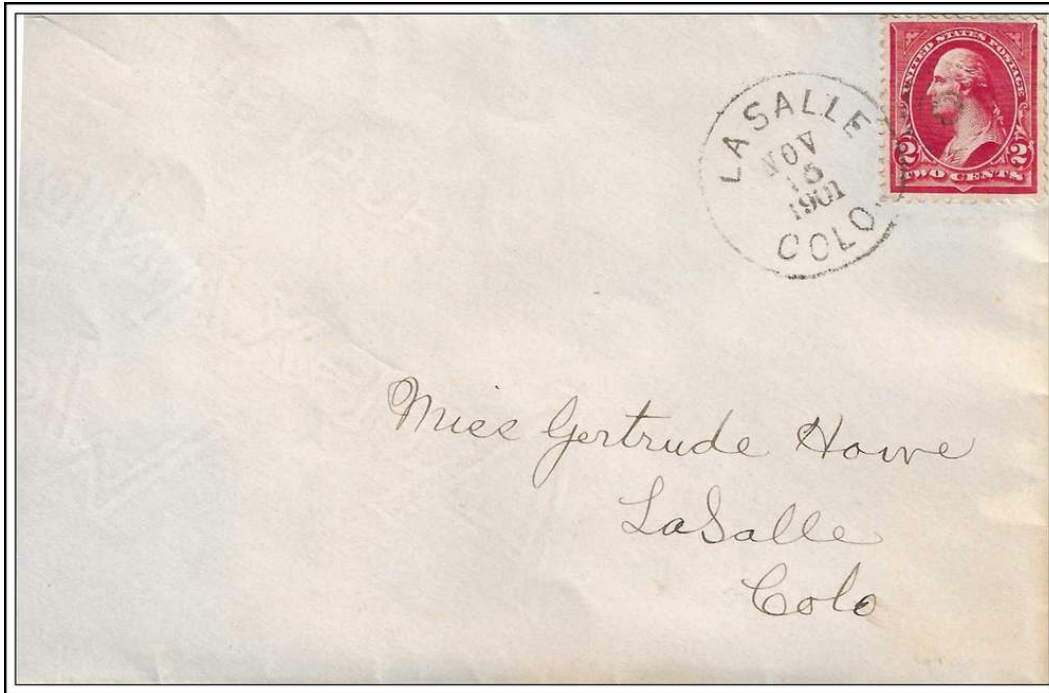 LASALLE
NOV
15
1901
COLO.
UNITED STATES POSTAGE
2 2
TWO CENTS
Miss Gertrude Howe
LaSalle
Colo